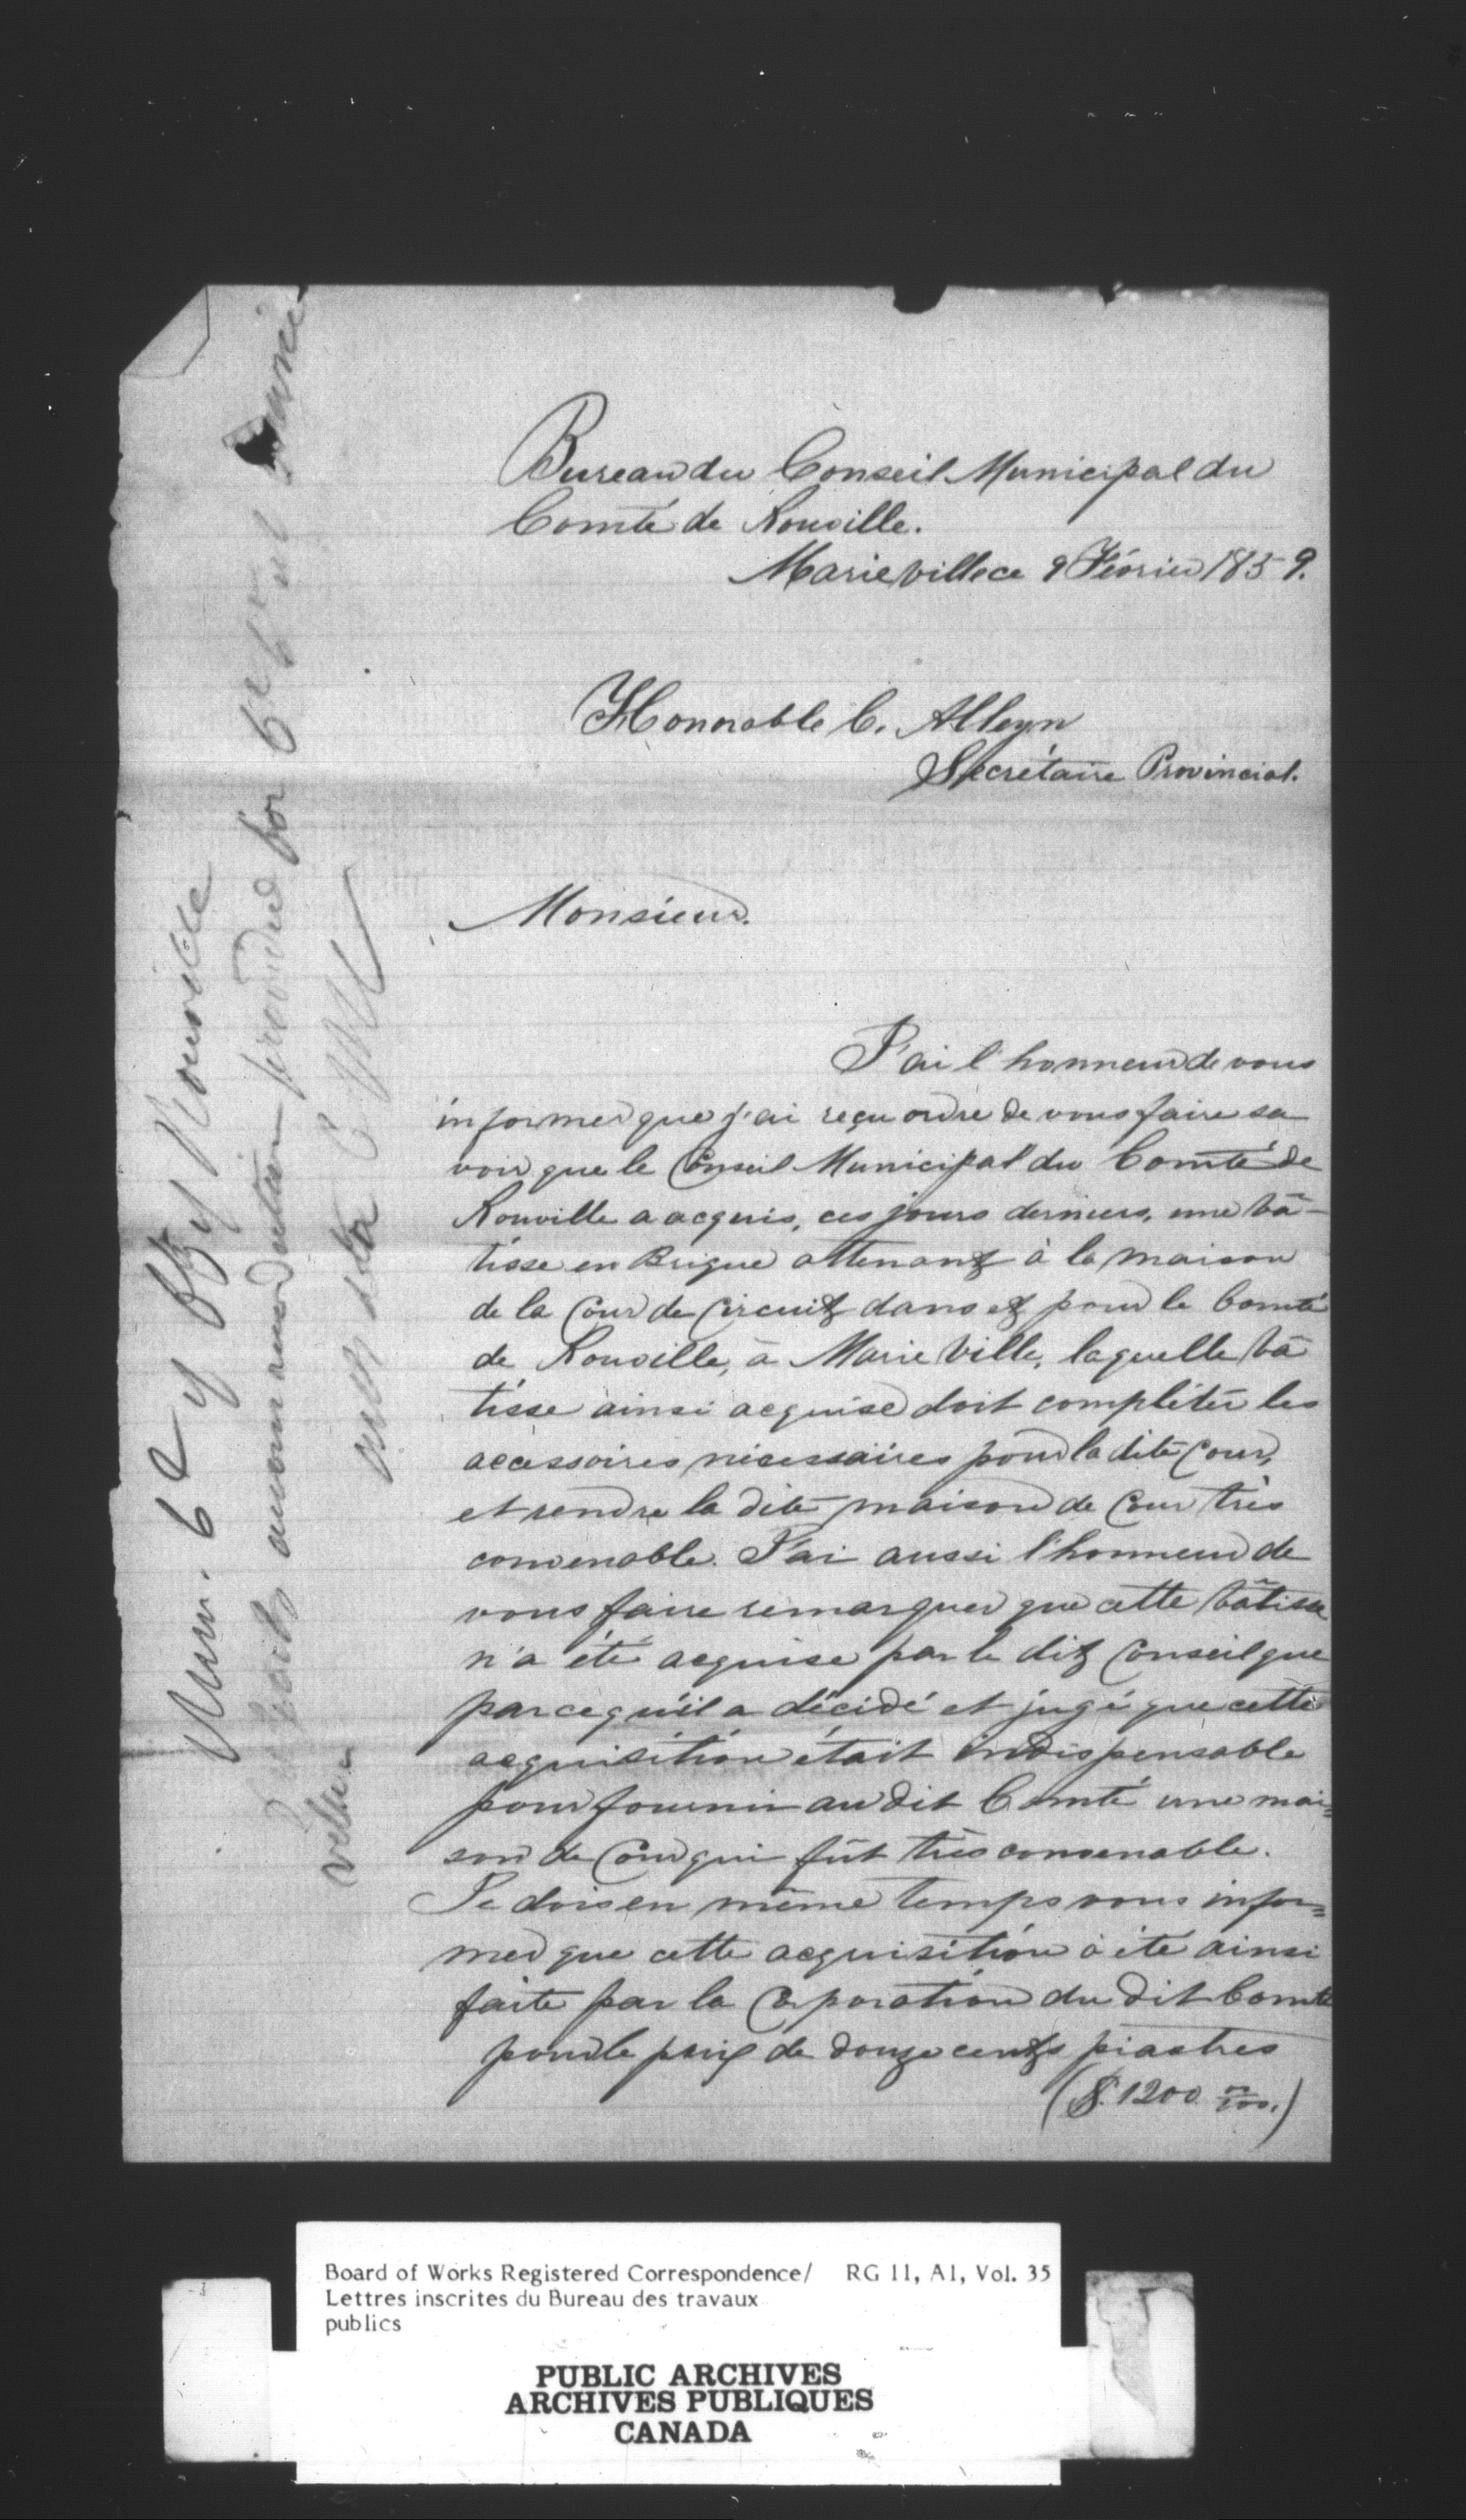 Bureau du Conseil Municipal du
Comté de Rouville.
Marieville ce 9 Février 1859.
Honorable C. Alleyn
Secrétaire Provincial.
Monsieur.
J'ai l'honneur de vous
informer que j'ai reçu ordre de vous faire sa
voir que le Conseil Municipal du Comté de
Rouville a acquis, ces jours derniers, une bâ-
tisse en Brique attenant à la maison
de la Cour de Circuit dans et pour le Comté
de Rouville, à Marieville, laquelle bâ
tisse ainsi acquise doit compléter les
accessoires nécessaires pour la dite Cour,
et rendre la dite maison de Cour très
convenable. J'ai aussi l'honneur de
vous faire remarquer que cette bâtisse
n'a été acquise par le dit Conseil que
parcequ'il a décidé et jugé que cette
acquisition était indispensable
pour fournir au dit Comté une mai=
son de Cour qui fût très convenable.
Je dois en même temps vous infor=
mer que cette acquisition à été ainsi
faite par la Corporation du dit Comté
pour le prix de douze cents piastres
($. 1200 00/100.)
Mun. Cy of Cy Rouville
accommodation provided for
ville
Board of Works Registered Correspondence/ RG 11, A1, Vol. 35
Lettres inscrites du Bureau des travaux
publics
PUBLIC ARCHIVES
ARCHIVES PUBLIQUES
CANADA